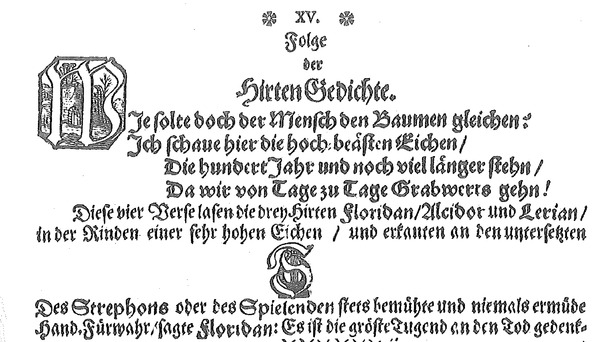 XV.
Folge
der
HirtenGedichte.
WJe solte doch der Mensch den Baumen gleichen?
Jch schaue hier die hoch-beästen Eichen/
Die hundert Jahr und noch viel länger stehn/
Da wir von Tage zu Tage Grabwerts gehn!
Diese vier Verse lasen die drey-Hirten Floridan/Alcidor und Lerian/
in der Rinden einer sehr hohen Eichen / und erkanten an den untersetzten
S
Des Strephons oder des Spielenden stets bemühte und niemals ermüde
Hand. Fürwahr/sagte Floridan: Es ist die gröste Tugend an den Tod gedenk-